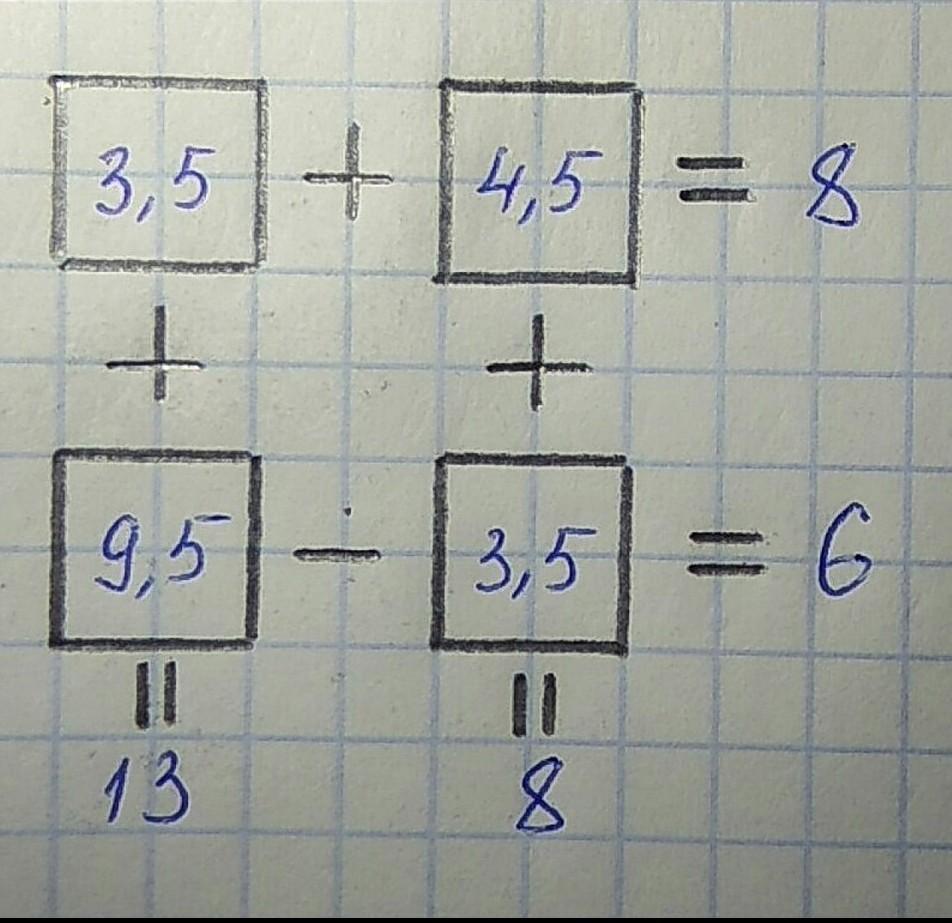 3,5 + 4,5 = 8
+ +
9,5 - 3,5 = 6
= =
13 8